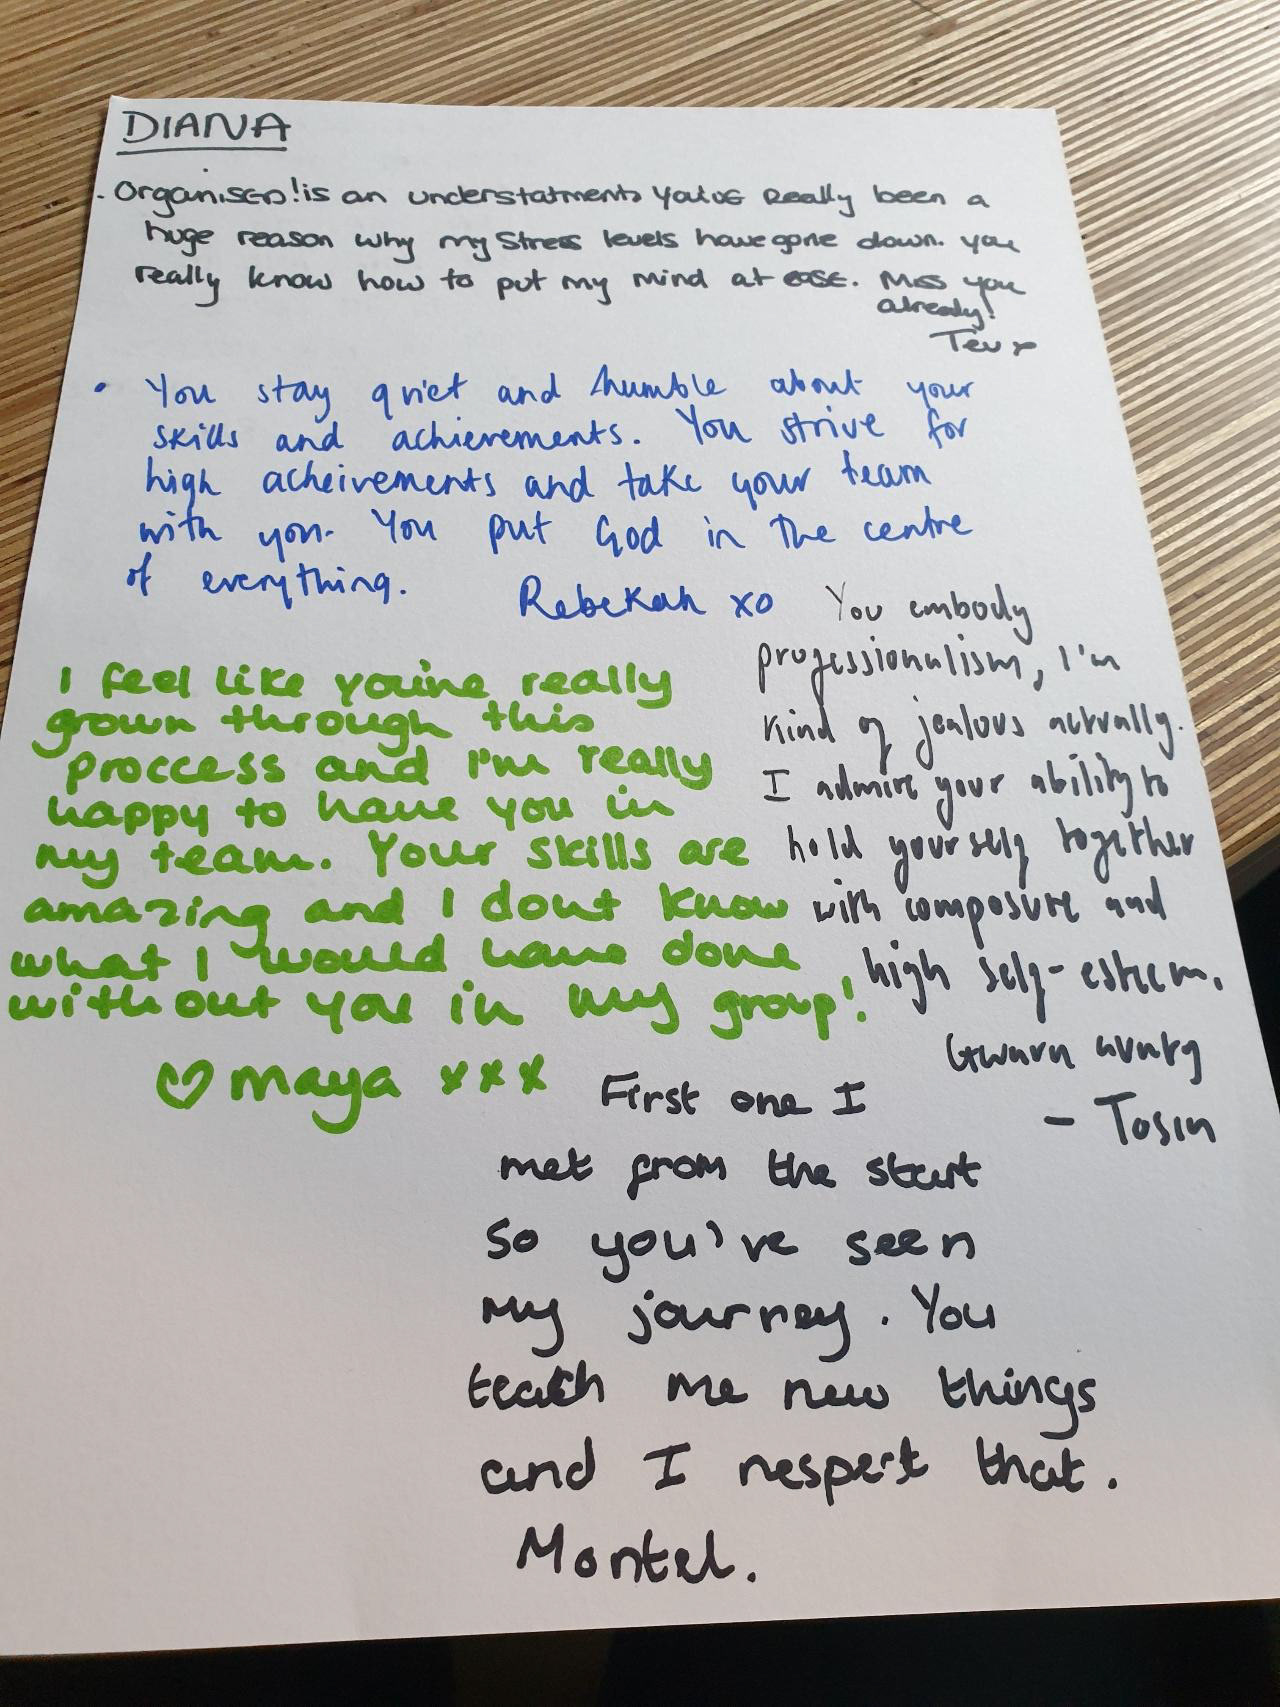 DIANA
. Organised! is an understatment. You've really been a
huge reason why my stress levels have gone down. you
really know how to put my mind at ease. Miss you
already!
Tev x
• You stay quiet and humble about your
skills and achievements. You strive for
high acheivements and take your team
with you. You put God in the centre
of everything.
Rebekah xo
I feel like you've really
grown through this
proccess and I'm really
happy to have you in
my team. Your skills are
amazing and I dont know
what I would have done
without you in my group!
♡ maya xxx
You embody
professionalism, I'm
kind of jealous actually.
I admire your ability to
hold yourself together
with composure and
high self-esteem.
- Tosin
First one I
met from the start
So you've seen
my journey. You
teach me new things
and I respect that.
Montel.